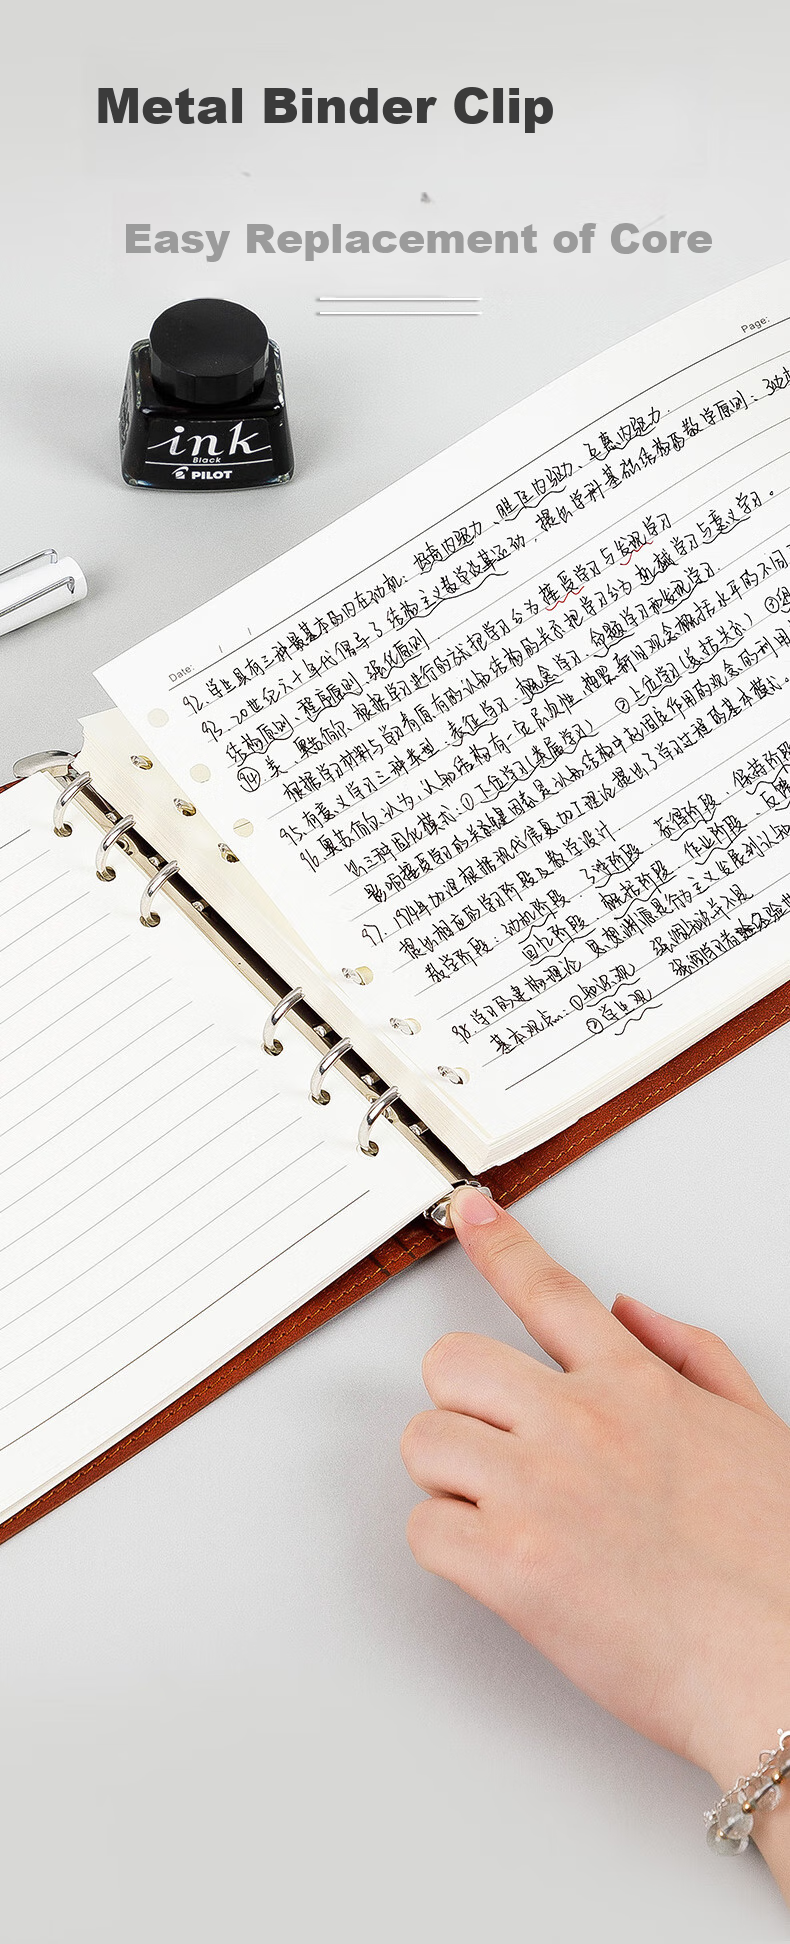 Metal Binder Clip
Easy Replacement of Core
ink
Black
PILOT
Page:
Date: / /
92. 学生具有三种最基本的内在动机:好奇内驱力、胜任内驱力、互惠内驱力.
93. 20世纪六十年代倡导了结构主义教学改革运动,提出学科基础结构的教学原则:动机
结构原则、程序原则、强化原则.
94 美. 奥苏伯尔 根据学习进行的方式把学习分为接受学习与发现学习
根据学习材料与学习者原有的认知结构的关系把学习分为机械学习与意义学习。
95. 有意义学习三种类型:表征学习、概念学习、命题学习和发现学习.
96. 奥苏伯尔认为,认知结构有一定层次性,按照新旧观念概括水平的不同
出三种同化模式:①下位学习(类属学习) ②上位学习(总括关系)
影响接受学习的关键因素是认知结构中起固定作用的观念的利用
97. 1974年加涅根据现代信息加工理论提出了学习过程的基本模式。
提出相应的学习阶段及教学设计
教学阶段:动机阶段、了解阶段、获得阶段、保持阶段
回忆阶段、概括阶段、作业阶段、反馈
98. 学习的建构理论 思想渊源是行为主义发展到认知
基本观点:①知识观 强调知识并不是
②学生观 强调学习者